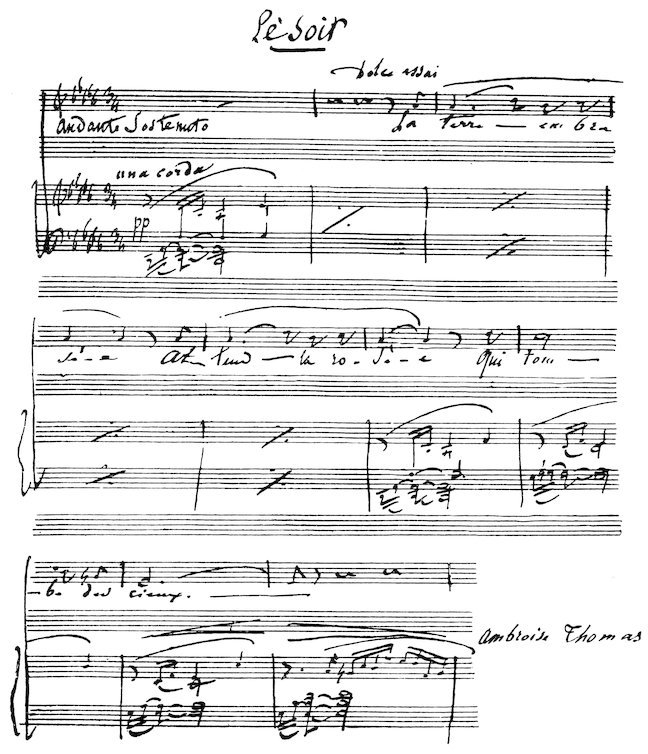 Le Soir
Dolce assai
Andante Sostenuto
La terre — em bra
una corda
pp
sé - e At - tend — la ro - sé - e Qui tom —
- be des cieux.
Ambroise Thomas